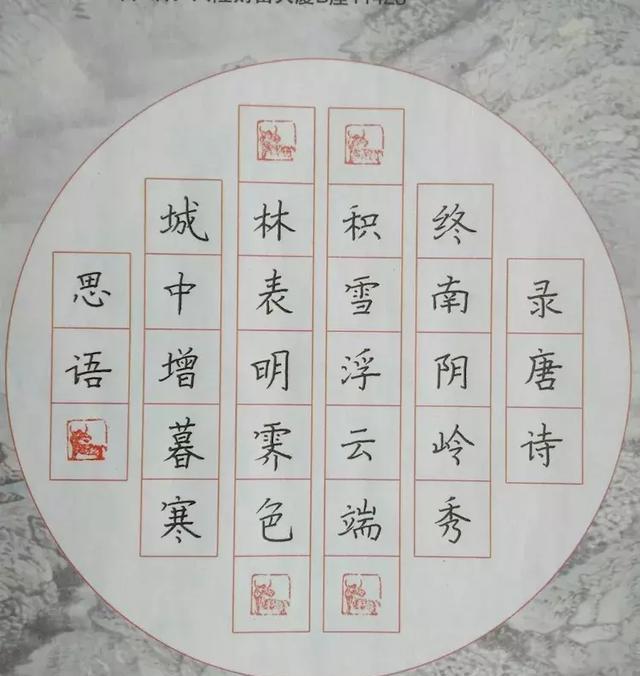 录唐诗
终南阴岭秀
积雪浮云端
林表明霁色
城中增暮寒
思语